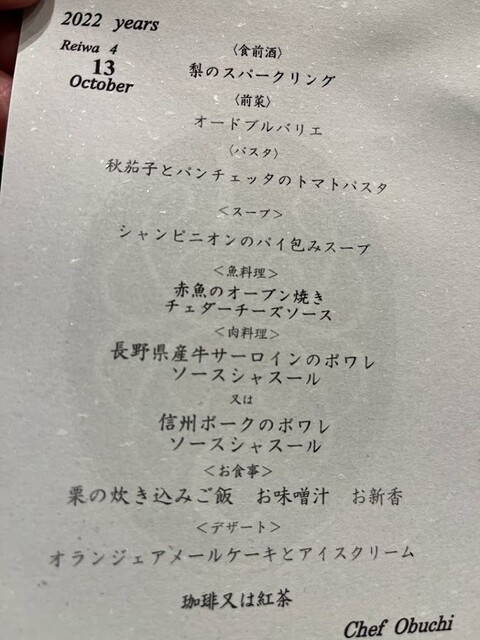 2022 years
Reiwa 4
13
October
〈食前酒〉
梨のスパークリング
〈前菜〉
オードブルバリエ
〈パスタ〉
秋茄子とパンチェッタのトマトパスタ
＜スープ＞
シャンピニオンのパイ包みスープ
＜魚料理＞
赤魚のオーブン焼き
チェダーチーズソース
＜肉料理＞
長野県産牛サーロインのポワレ
ソースシャスール
又は
信州ポークのポワレ
ソースシャスール
＜お食事＞
栗の炊き込みご飯　お味噌汁　お新香
＜デザート＞
オランジェアメールケーキとアイスクリーム
珈琲又は紅茶
Chef Obuchi